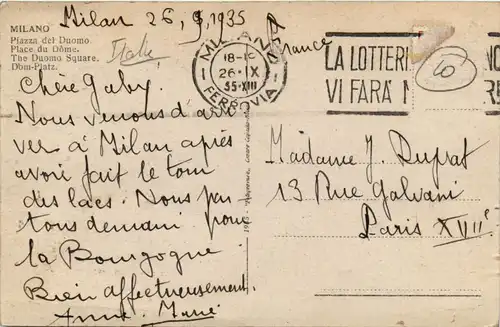 Milan 26, 9, 1935
MILANO
Piazza del Duomo
Place du Dôme.
The Duomo Square.
Dom-Platz.
Italie
MILANO
18-19
26·IX
35-XIII
FERROVIA
France
LA LOTTERI
VI FARÀ
10
Chère Gaby.
Nous venons d'arri
ver à Milan après
avoir fait le tour
des lacs. Nous par
tons demain pour
la Bourgogne.
Bien affectueusement.
Anne-Marie
Madame J. Duprat
13 Rue Galvani
Paris XVIIe